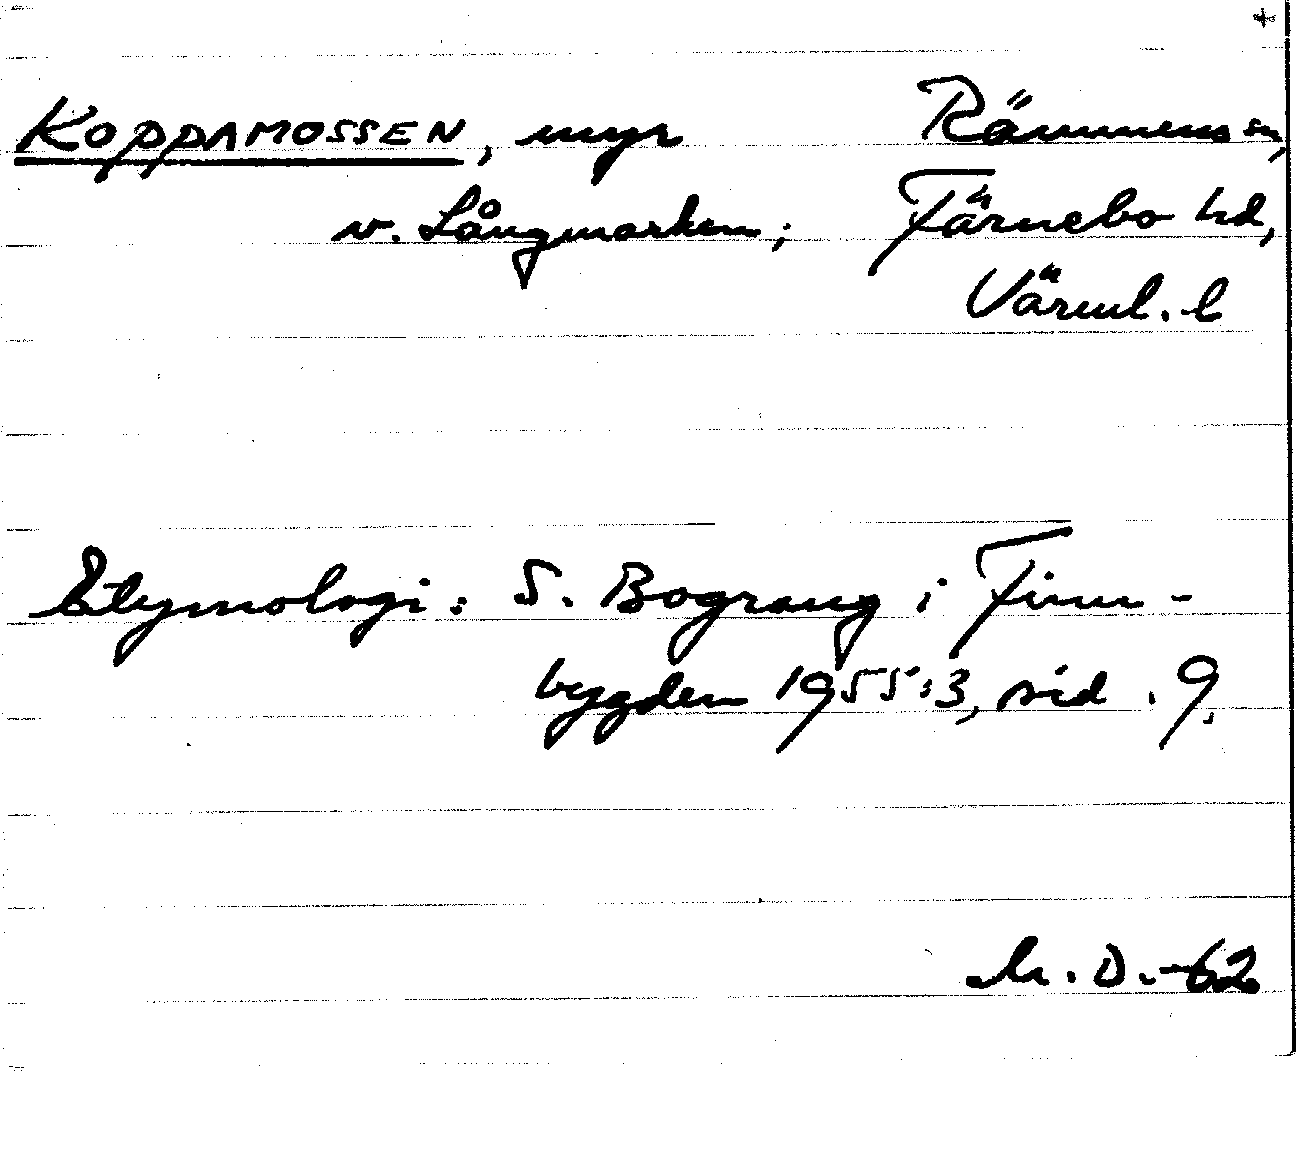 KOPPAMOSSEN, myr Rämmens sn,
v. Långmarken; Färnebo hd,
Värml. l
Etymologi: S. Bograng i Finn-
bygden 1955:3, sid. 9.
M. D. -62